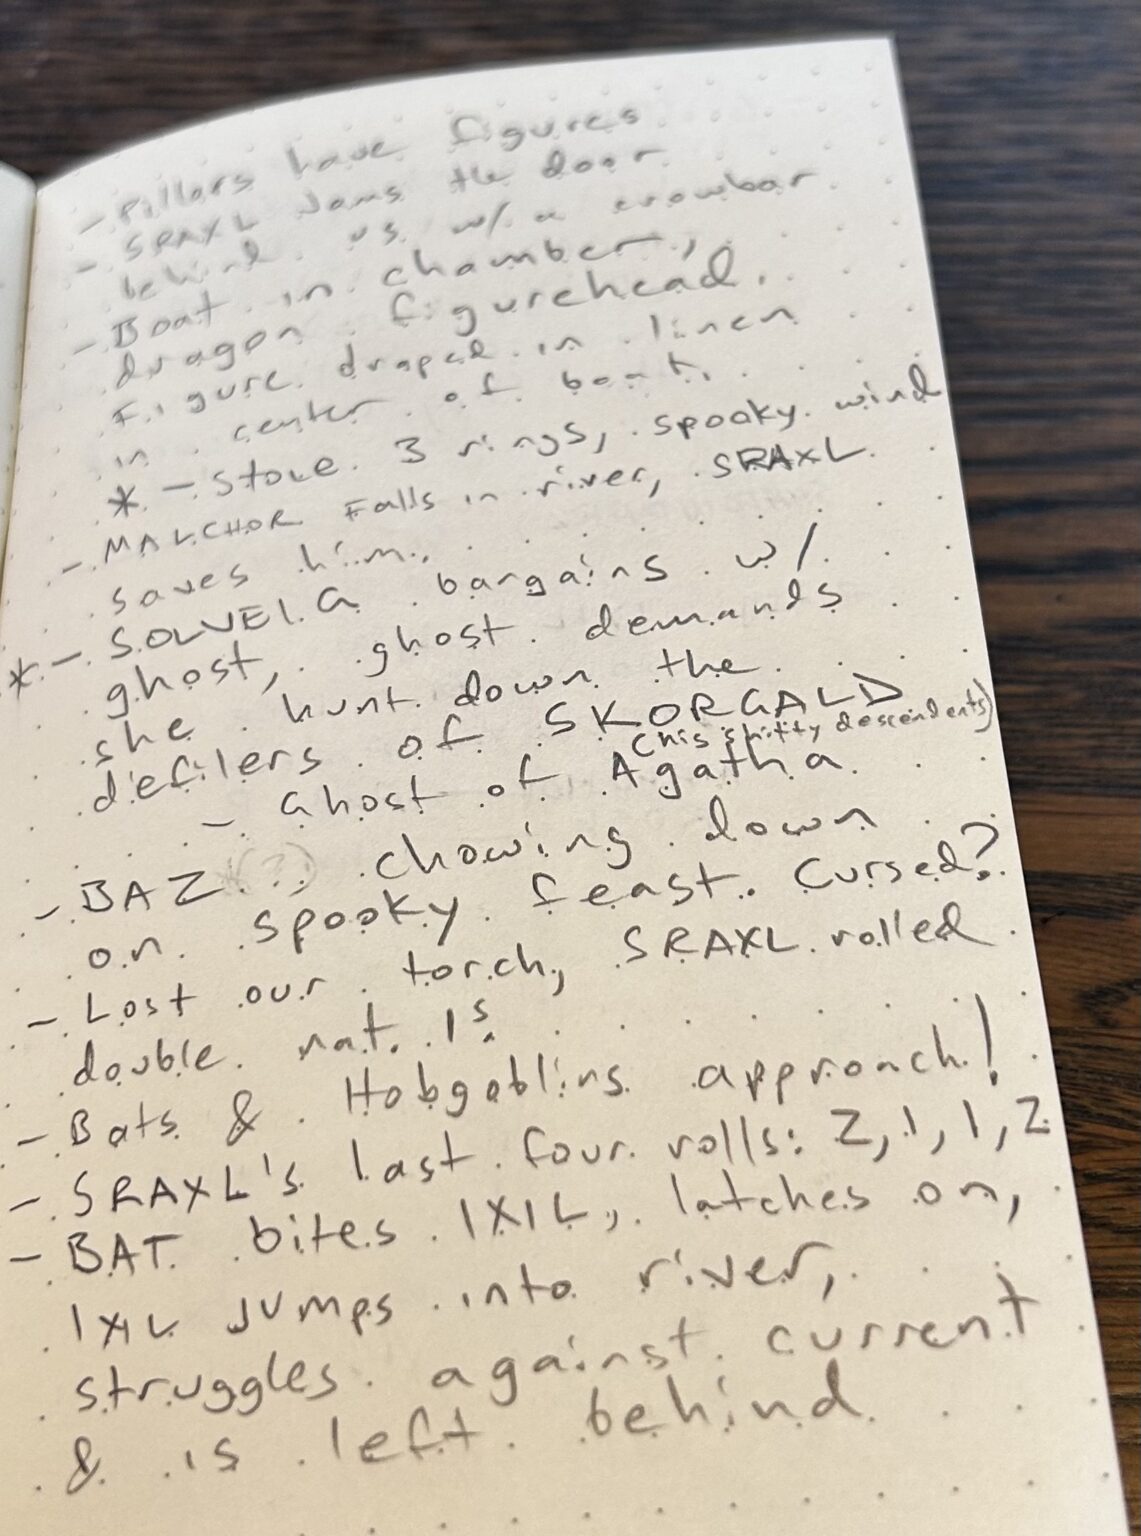 - Pillars have figures
- SRAXL Jams the door
behind us w/ a crowbar
- Boat in chamber,
dragon figurehead.
Figure draped in linen
in center of boat.
* - Stole 3 rings, spooky wind
- MALCHOR Falls in river, SRAXL
saves him.
* - SOLVEIG bargains w/
ghost, ghost demands
she hunt down the
defilers of SKORGALD
(his shitty descendents)
- Ghost of Agatha
- BAZ (?) chowing down
on spooky feast. Cursed?
- Lost our torch, SRAXL rolled
double nat 1s.
- Bats & Hobgoblins approach!
- SRAXL's last four rolls: 2, 1, 1, 2
- BAT bites IXIL, latches on,
IXIL Jumps into river,
struggles against current
& is left behind